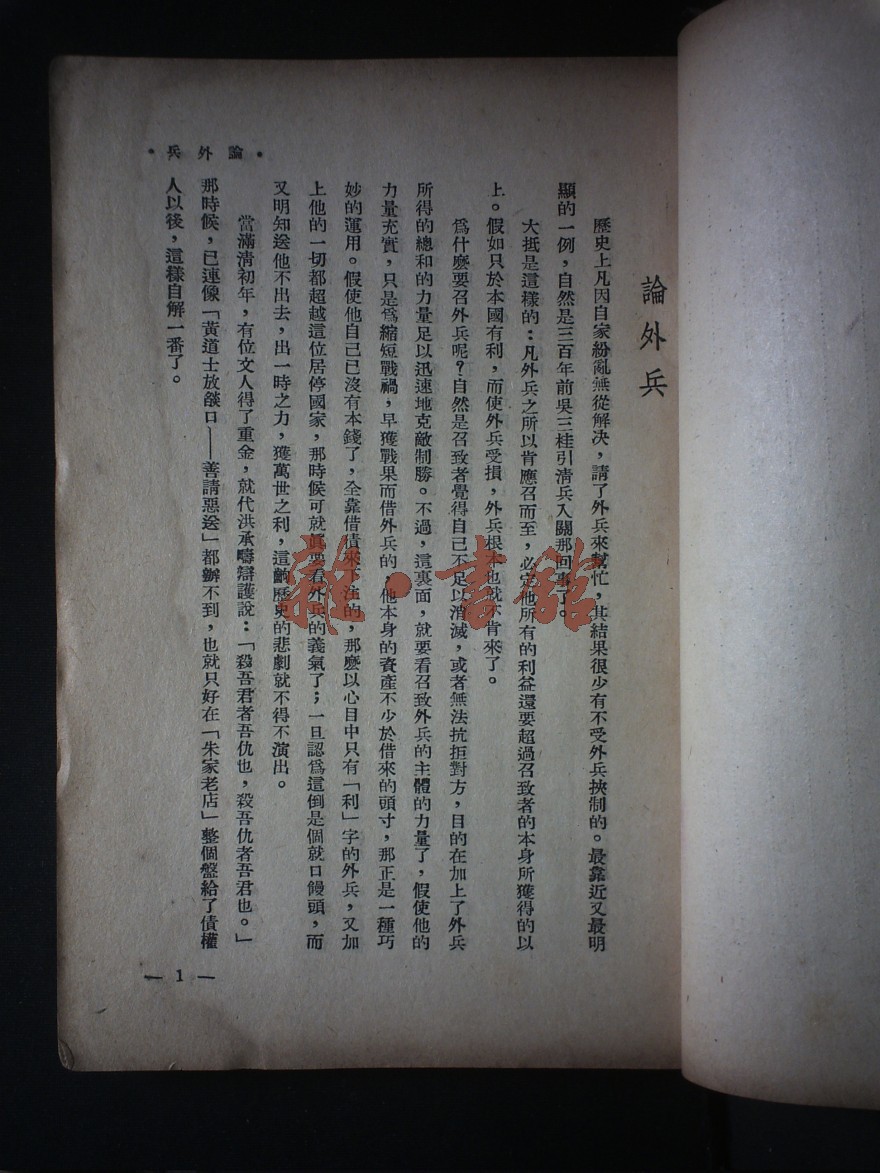 論外兵
歷史上凡因自家紛亂無從解決，請了外兵來幫忙，其結果很少有不受外兵挾制的。最靠近又最明
顯的一例，自然是三百年前吳三桂引清兵入關那回事了。
大抵是這樣的：凡外兵之所以肯應召而至，必定他所有的利益還要超過召致者的本身所獲得的以
上。假如只於本國有利，而使外兵受損，外兵根本也就不肯來了。
爲什麽要召外兵呢？自然是召致者覺得自己不足以消滅，或者無法抗拒對方，目的在加上了外兵
所得的總和的力量足以迅速地克敵制勝。不過，這裏面，就要看召致外兵的主體的力量了，假使他的
力量充實，只是爲縮短戰禍，早獲戰果而借外兵的，他本身的資產不少於借來的頭寸，那正是一種巧
妙的運用。假使他自己已沒有本錢了，全靠借債來下注的，那麽以心目中只有「利」字的外兵，又加
上他的一切都超越這位居停國家，那時候可就眞要看外兵的義氣了；一旦認爲這倒是個就口饅頭，而
又明知送他不出去，出一時之力，獲萬世之利，這齣歷史的悲劇就不得不演出。
當滿清初年，有位文人得了重金，就代洪承疇辯護說：「殺吾君者吾仇也，殺吾仇者吾君也。」
那時候，已連像「黃道士放燄口——善請惡送」都辦不到，也就只好在「朱家老店」整個盤給了債權
人以後，這樣自解一番了。
•論外兵•
— 1 —
雜·書館